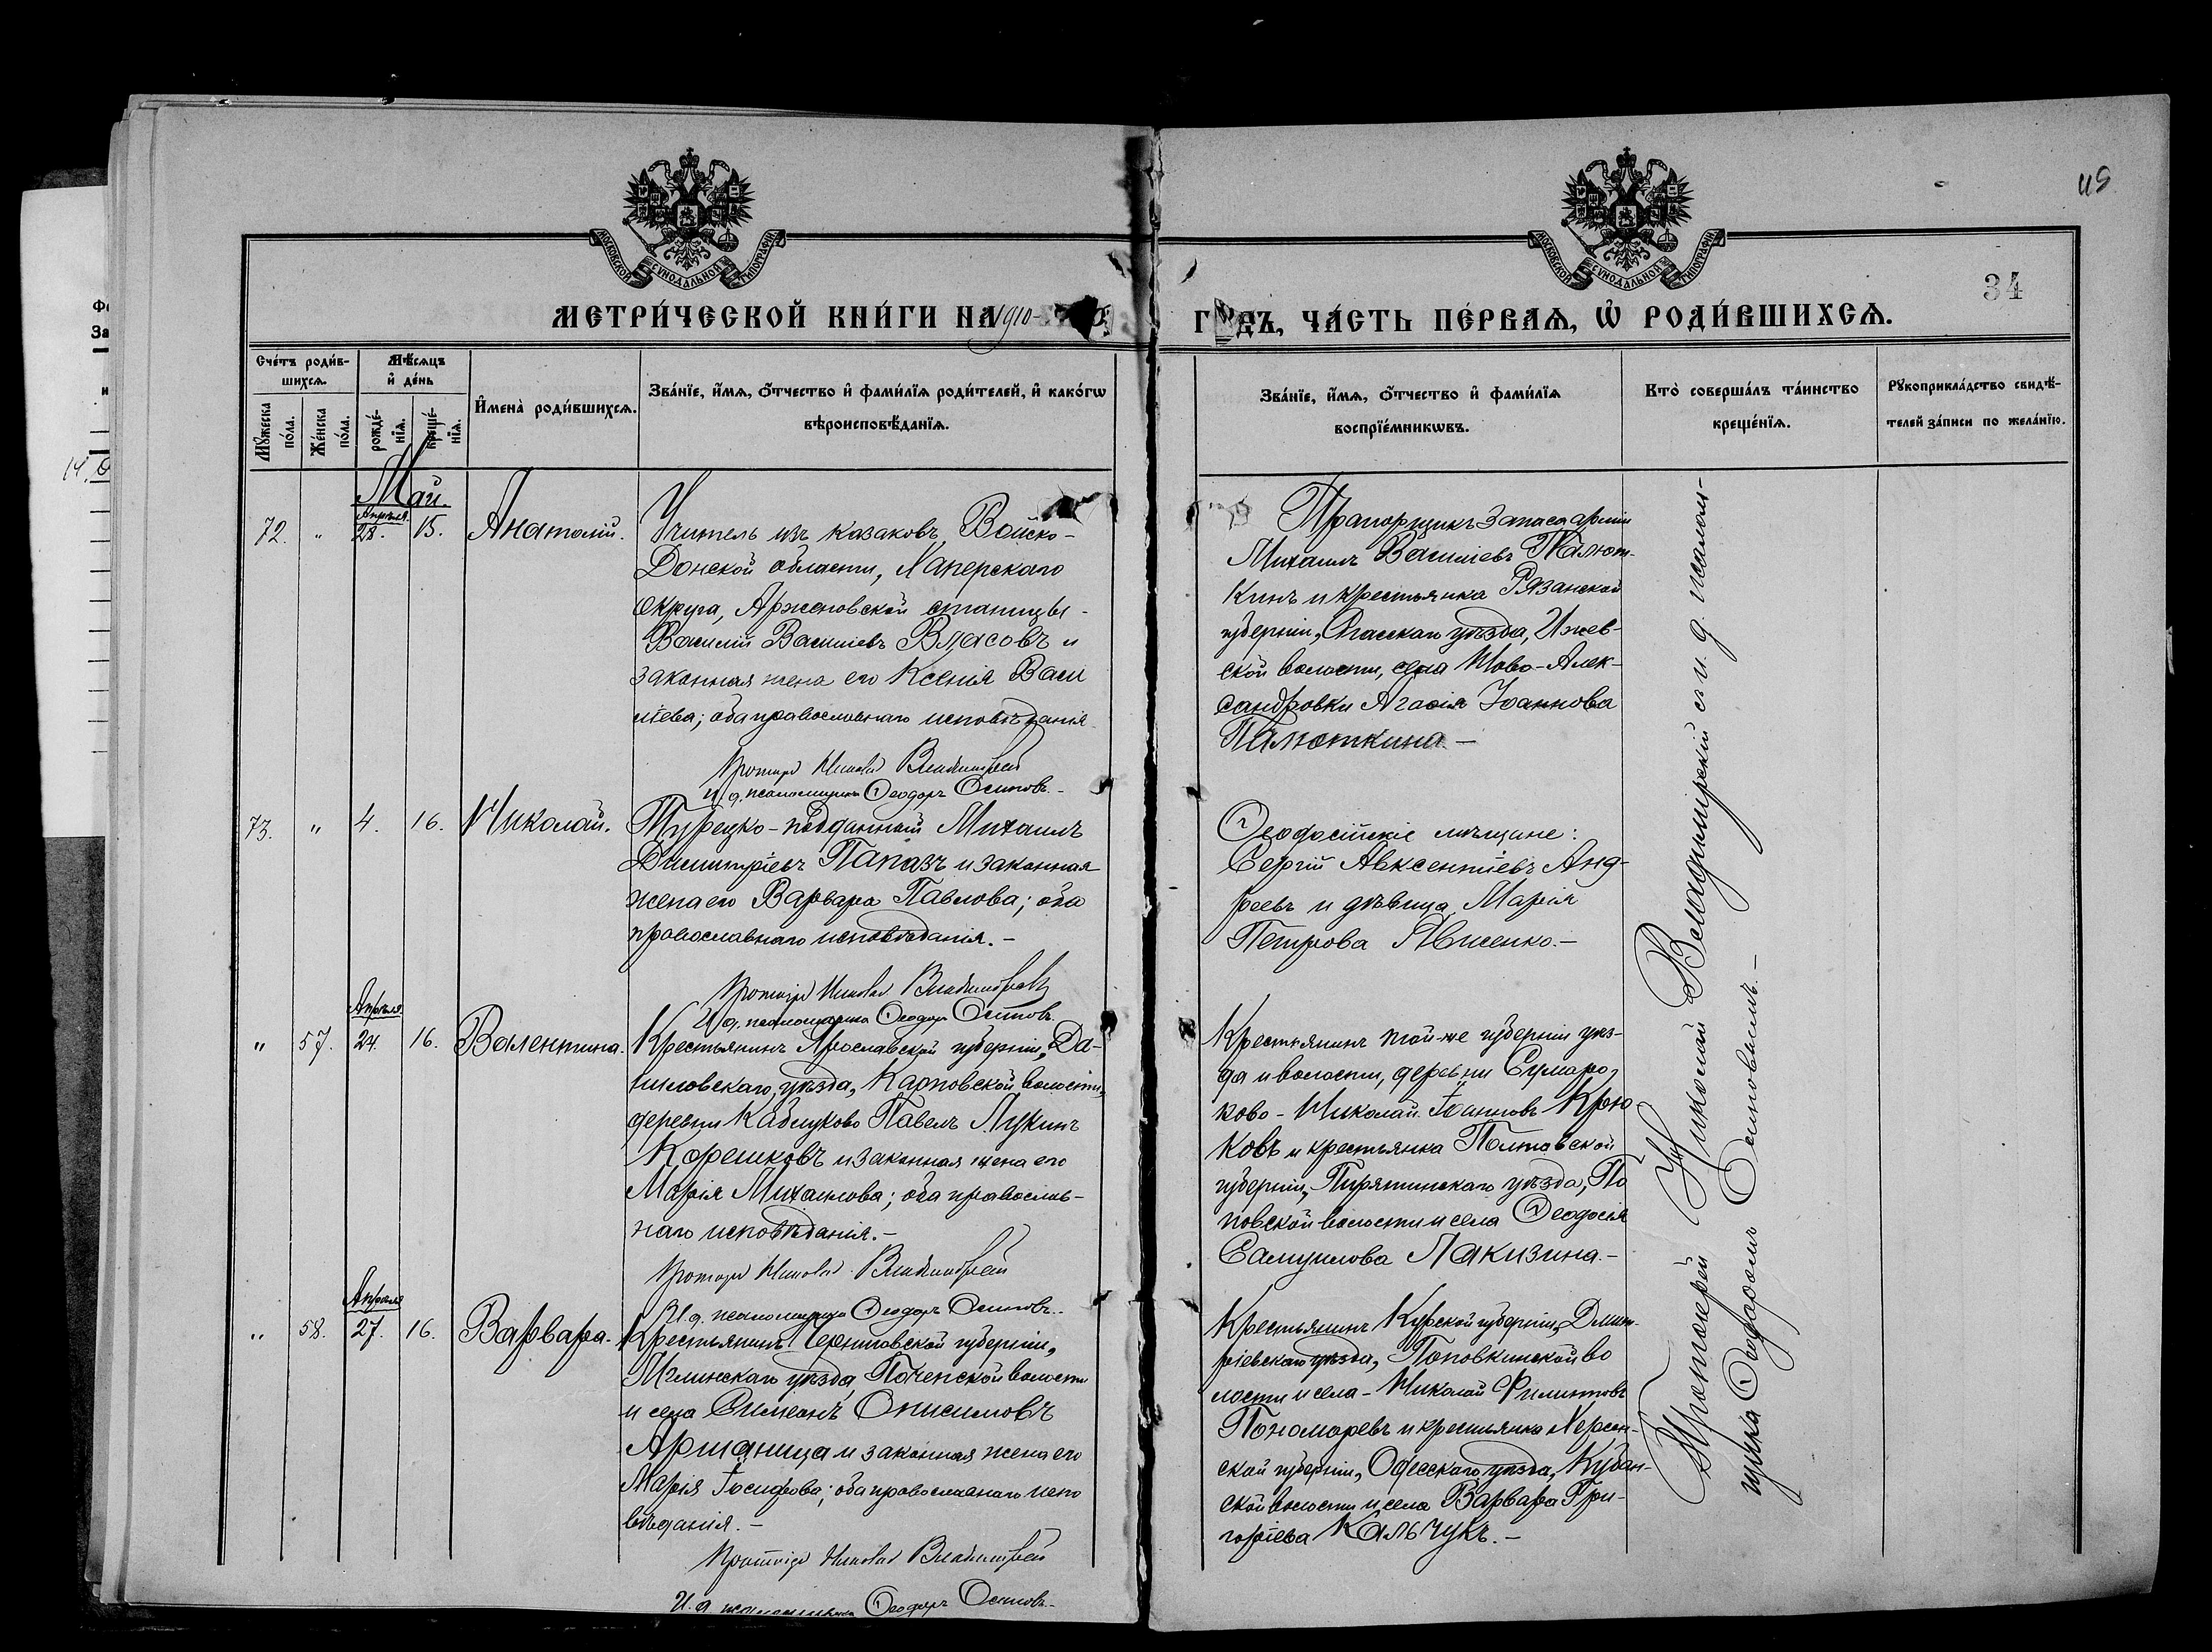 45
34
МОСКОВСКОЙ СѴНОДАЛЬНОЙ ТИПОГРАФІИ
МОСКОВСКОЙ СѴНОДАЛЬНОЙ ТИПОГРАФІИ
МЕТРИ́ЧЕСКОЙ КНИ́ГИ НА 1910
ГОДЪ, ЧА́СТЬ ПЕ́РВАѦ, Ѡ҆ РОДИ́ВШИХСѦ.
Сче́тъ роди́в-
шихсѧ.
Мꙋ́жеска
по́ла.
Же́нска
по́ла.
Мѣ́сѧцъ
и҆ де́нь
рожде́-
нїѧ.
креще́-
нїѧ.
И҆мена̀ роди́вшихсѧ.
Зва́нїе, и҆́мѧ, ѻ҆́тчество и҆ фами́лїѧ роди́телей, и҆ како́гѡ
вѣроисповѣ́данїѧ.
Зва́нїе, и҆́мѧ, ѻ҆́тчество и҆ фами́лїѧ
воспрїе́мникѡвъ.
Кто̀ соверша́лъ та́инство
креще́нїѧ.
Рꙋкоприкла́дство свидѣ́-
телей за́писи по жела́нїю.
Май.
72.
"
Апрѣля
28.
15.
Анатолій.
Учитель изъ казаковъ Войско-
Донской области, Хаперскаго
округа, Аржановской станицы -
Василій Василіевъ Власовъ и
законная жена его Ксенія Васи
ліева; оба православнаго исповѣданія
Протоіер Николай Владимірскій
И. д. псаломщика Ѳеодоръ Осиповъ.-
Прапорщикъ запаса арміи
Михаилъ Василіевъ Палют-
кинъ и крестьянка Рязанской
губерніи, Спасскаго уѣзда, Ижев-
ской волости, села Ново-Алек-
сандровки Агафія Іоаннова
Палюткина.-
73.
"
4.
16.
Николай.
Турецко-подданный Михаилъ
Димитріевъ Папазъ и законная
жена его Варвара Павлова; оба
православнаго исповѣданія.-
Протоіер Николай Владимірскій
И. д. псаломщика Ѳеодоръ Осиповъ.
Ѳеодосійскіе мѣщане:
Сергій Авксентіевъ Анд-
реевъ и дѣвица Марія
Петрова Явисенко.-
"
57.
Апрѣля
24.
16.
Валентина.
Крестьянинъ Ярославской губерніи, Да-
ниловскаго уѣзда, Карповской волости,
деревни Каблуково Павелъ Лукинъ
Корешковъ и законная жена его
Марія Михаилова; оба православ-
наго исповѣданія.-
Протоіер Николай Владимірскій
И. д. псаломщика Ѳеодоръ Осиповъ.-
Крестьянинъ той-же губерніи уѣз-
да и волости, деревни Сумаро-
ково - Николай Іоанновъ Крю
ковъ и крестьянка Полтавской
губерніи, Пирятинскаго уѣзда, По
повской волости и села Ѳеодосія
Самуилова Лакизина.-
"
58.
Апрѣля
27.
16.
Варвара.
Крестьянинъ Черниговской губерніи,
Мглинскаго уѣзда, Почепской волости
и села Симеонъ Онисимовъ
Аршаница и законная жена его
Марія Іосифова; оба православнаго испо
вѣданія.-
Протоіер Николай Владимірскій
И. д. псаломщика Ѳеодоръ Осиповъ.-
Крестьянинъ Курской губерніи, Дмит-
ріевскаго уѣзда, Поповкинской во
лости и села - Николай Филиповъ
Пономаревъ и крестьянка Херсон-
ской губерніи, Одесскаго уѣзда, Кубан-
ской волости и села Варвара Гри-
горіева Кальчукъ.-
Протоіерей Николай Владимірскій съ и. д. псалом-
щика Ѳеодоромъ Осиповымъ.-